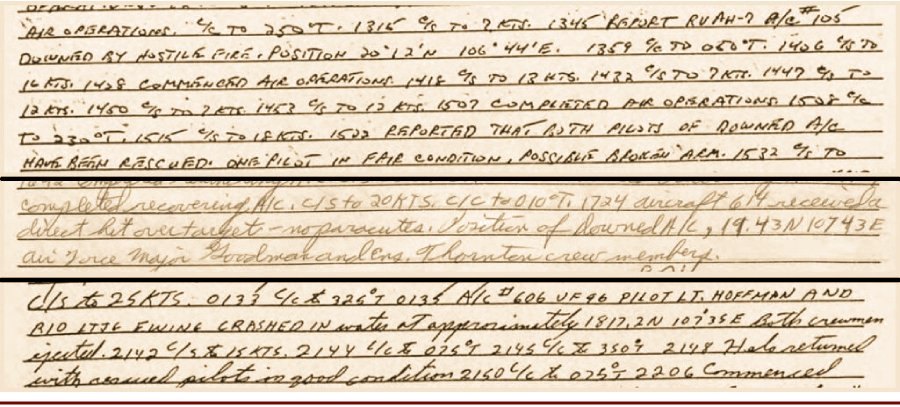 AIR OPERATIONS. C/C TO 250°T. 1315 C/S TO 7 KTS. 1345 REPORT RVAH-7 A/C #105
DOWNED BY HOSTILE FIRE, POSITION 20°12'N 106°44'E. 1359 C/C TO 050°T. 1406 C/S TO
16 KTS. 1408 COMMENCED AIR OPERATIONS. 1418 C/S TO 13 KTS. 1432 C/S TO 7 KTS. 1447 C/S TO
12 KTS. 1450 C/S TO 7 KTS. 1453 C/S TO 12 KTS. 1507 COMPLETED AIR OPERATIONS. 1508 C/C
TO 230°T. 1515 C/S TO 18 KTS. 1522 REPORTED THAT BOTH PILOTS OF DOWNED A/C
HAVE BEEN RESCUED. ONE PILOT IN FAIR CONDITION, POSSIBLE BROKEN ARM. 1532 C/S TO
completed recovering A/C. C/S to 20 KTS. C/C to 010°T. 1724 aircraft 614 received a
direct hit over target - no paracutes. Position of downed A/C, 19.43N 107 43E
air Force Major Goodman and Ens. Thornton crew members.
C/S to 25 KTS. 0133 C/C to 325°T 0135 A/C #606 VF96 PILOT LT. HOFFMAN AND
RIO LTJG EWING CRASHED IN water at approximately 1817.2N 107°35E Both crewmen
ejected. 2142 C/S to 15 KTS. 2144 C/C to 025°T 2145 C/C to 350°T 2148 Helo returned
with rescued pilots in good condition 2150 C/C to 075°T 2206 Commenced